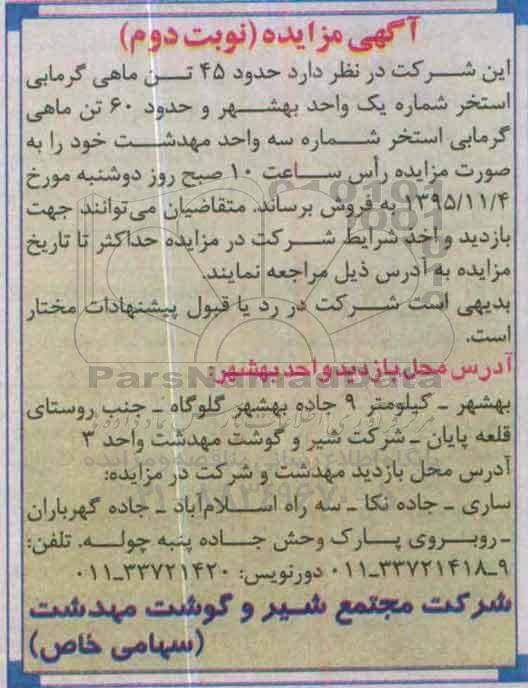 آگهی مزایده (نوبت دوم)
این شرکت در نظر دارد حدود ۴۵ تن ماهی گرمابی
استخر شماره یک واحد بهشهر و حدود ۶۰ تن ماهی
گرمابی استخر شماره سه واحد مهدشت خود را به
صورت مزایده رأس ساعت ۱۰ صبح روز دوشنبه مورخ
۱۳۹۵/۱۱/۴ به فروش برساند. متقاضیان می‌توانند جهت
بازدید و اخذ شرایط شرکت در مزایده حداکثر تا تاریخ
مزایده به آدرس ذیل مراجعه نمایند.
بدیهی است شرکت در رد یا قبول پیشنهادات مختار
است.
آدرس محل بازدید واحد بهشهر:
ParsNamadData
بهشهر ـ کیلومتر ۹ جاده بهشهر گلوگاه ـ جنب روستای
قلعه پایان ـ شرکت شیر و گوشت مهدشت واحد ۳
آدرس محل بازدید مهدشت و شرکت در مزایده:
ساری ـ جاده نکا ـ سه راه اسلام‌آباد ـ جاده گهرباران
ـ روبروی پارک وحش جاده پنبه چوله. تلفن:
۰۱۱-۳۳۷۲۱۴۱۸-۹ دورنویس: ۳۳۷۲۱۴۲۰-۰۱۱
شرکت مجتمع شیر و گوشت مهدشت
(سهامی خاص)